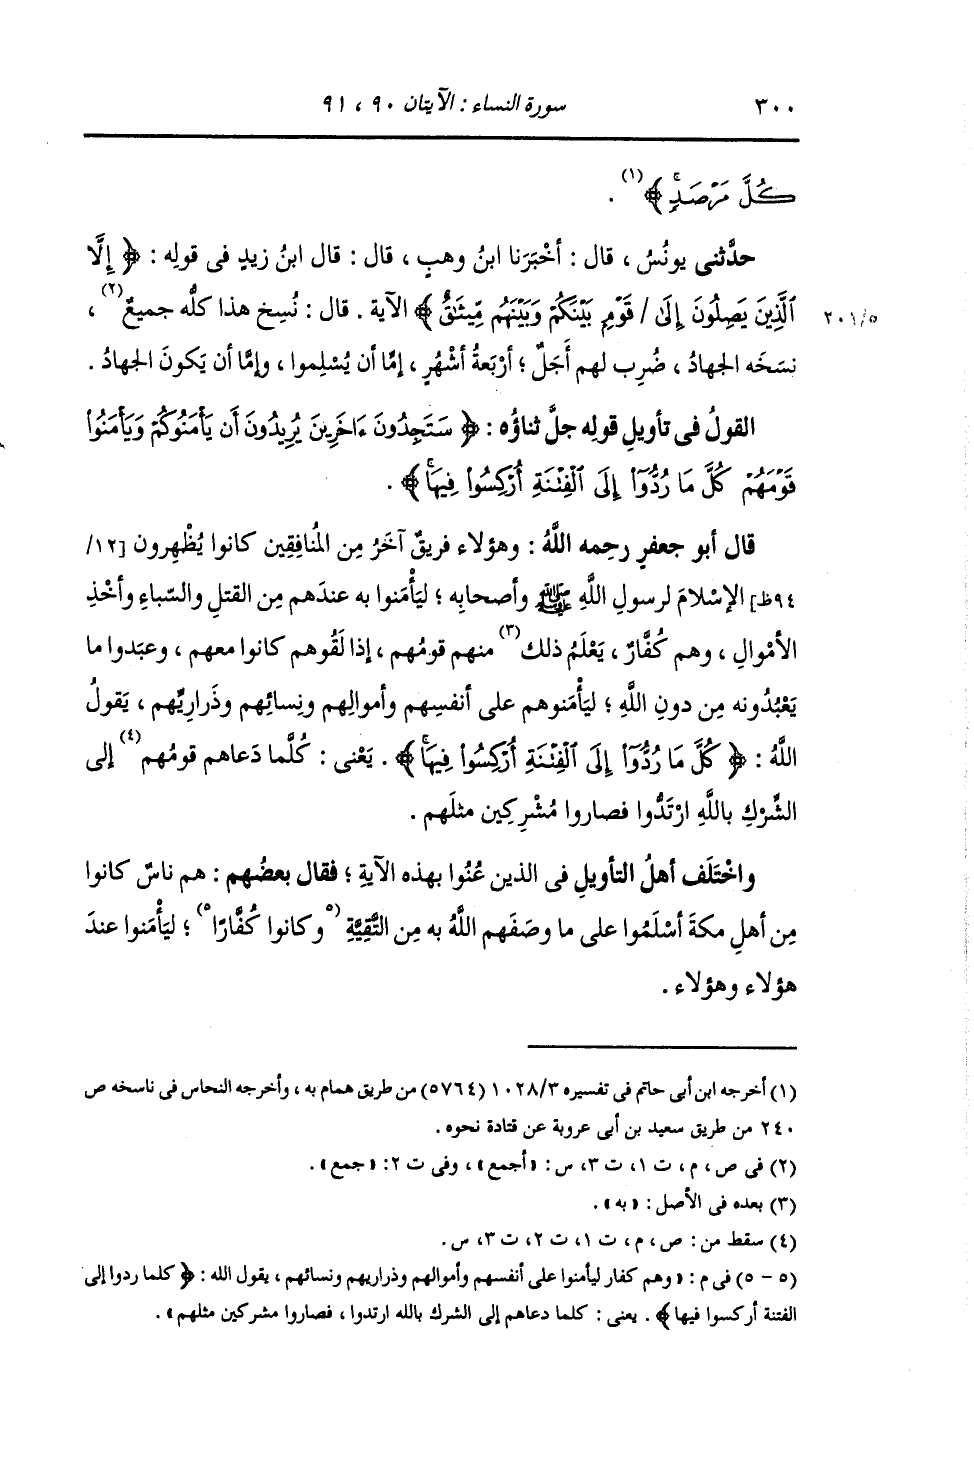 ٣٠٠ سورة النساء : الآيتان ٩٠ ، ٩١
كُلَّ مَرْصَدٍ ﴾ (١) .
حدَّثنى يونُسُ ، قال : أخْبَرَنا ابنُ وهبٍ ، قال : قال ابنُ زيدٍ فى قولِه : ﴿ إِلَّا
ٱلَّذِينَ يَصِلُونَ إِلَىٰ / قَوْمٍ بَيْنَكُمْ وَبَيْنَهُم مِّيثَٰقٌ ﴾ الآية . قال : نُسِخ هذا كلُّه جميعٌ (٢) ،
٢٠١/٥
نسَخَه الجهادُ ، ضُرِب لهم أَجَلٌ ؛ أرْبَعةُ أشْهُرٍ ، إمَّا أن يُسْلِموا ، وإمَّا أن يَكونَ الجهادُ .
القولُ فى تأويلِ قولِه جلَّ ثناؤُه : ﴿ سَتَجِدُونَ ءَاخَرِينَ يُرِيدُونَ أَن يَأْمَنُوكُمْ وَيَأْمَنُوا۟
قَوْمَهُمْ كُلَّ مَا رُدُّوٓا۟ إِلَى ٱلْفِتْنَةِ أُرْكِسُوا۟ فِيهَا ﴾ .
قال أبو جعفرٍ رحِمه اللَّهُ : وهؤلاء فريقٌ آخَرُ مِن المُنافِقِين كانوا يُظْهِرون [١٢/
٩٤ظ] الإسْلامَ لرسولِ اللَّهِ ﷺ وأصحابِه ؛ ليَأْمَنوا به عندَهم مِن القتلِ والسِّباءِ وأخْذِ
الأمْوالِ ، وهم كُفَّارٌ ، يَعْلَمُ ذلك (٣) منهم قومُهم ، إذا لَقُوهم كانوا معهم ، وعبَدوا ما
يَعْبُدُونه مِن دونِ اللَّهِ ؛ ليَأْمَنوهم على أنفسِهم وأموالِهم ونِسائِهم وذَرارِيِّهم ، يَقولُ
اللَّهُ : ﴿ كُلَّ مَا رُدُّوٓا۟ إِلَى ٱلْفِتْنَةِ أُرْكِسُوا۟ فِيهَا ﴾ . يَعْنى : كُلَّما دَعاهم قومُهم (٤) إلى
الشِّرْكِ باللَّهِ ارْتَدُّوا فصاروا مُشْرِكِين مثلَهم .
واخْتَلَف أهلُ التأويلِ فى الذين عُنُوا بهذه الآيةِ ؛ فقال بعضُهم : هم ناسٌ كانوا
مِن أهلِ مكةَ أسْلَمُوا على ما وصَفَهم اللَّهُ به مِن التَّقِيَّةِ (٥ وكانوا كُفَّارًا ٥) ؛ ليَأْمَنوا عندَ
هؤلاء وهؤلاء .
(١) أخرجه ابن أبى حاتم فى تفسيره ١٠٢٨/٣ (٥٧٦٤) من طريق همام به ، وأخرجه النحاس فى ناسخه ص
٢٤٠ من طريق سعيد بن أبى عروبة عن قتادة نحوه .
(٢) فى ص ، م ، ت ١، ت ٣، س : «أجمع» ، وفى ت ٢: «جمع» .
(٣) بعده فى الأصل : « به » .
(٤) سقط من : ص ، م ، ت ١، ت ٢، ت ٣، س .
(٥ - ٥) فى م : « وهم كفار ليأمنوا على أنفسهم وأموالهم وذراريهم ونسائهم ، يقول الله : ﴿ كلما ردوا إلى
الفتنة أركسوا فيها ﴾ . يعنى : كلما دعاهم إلى الشرك بالله ارتدوا ، فصاروا مشركين مثلهم » .